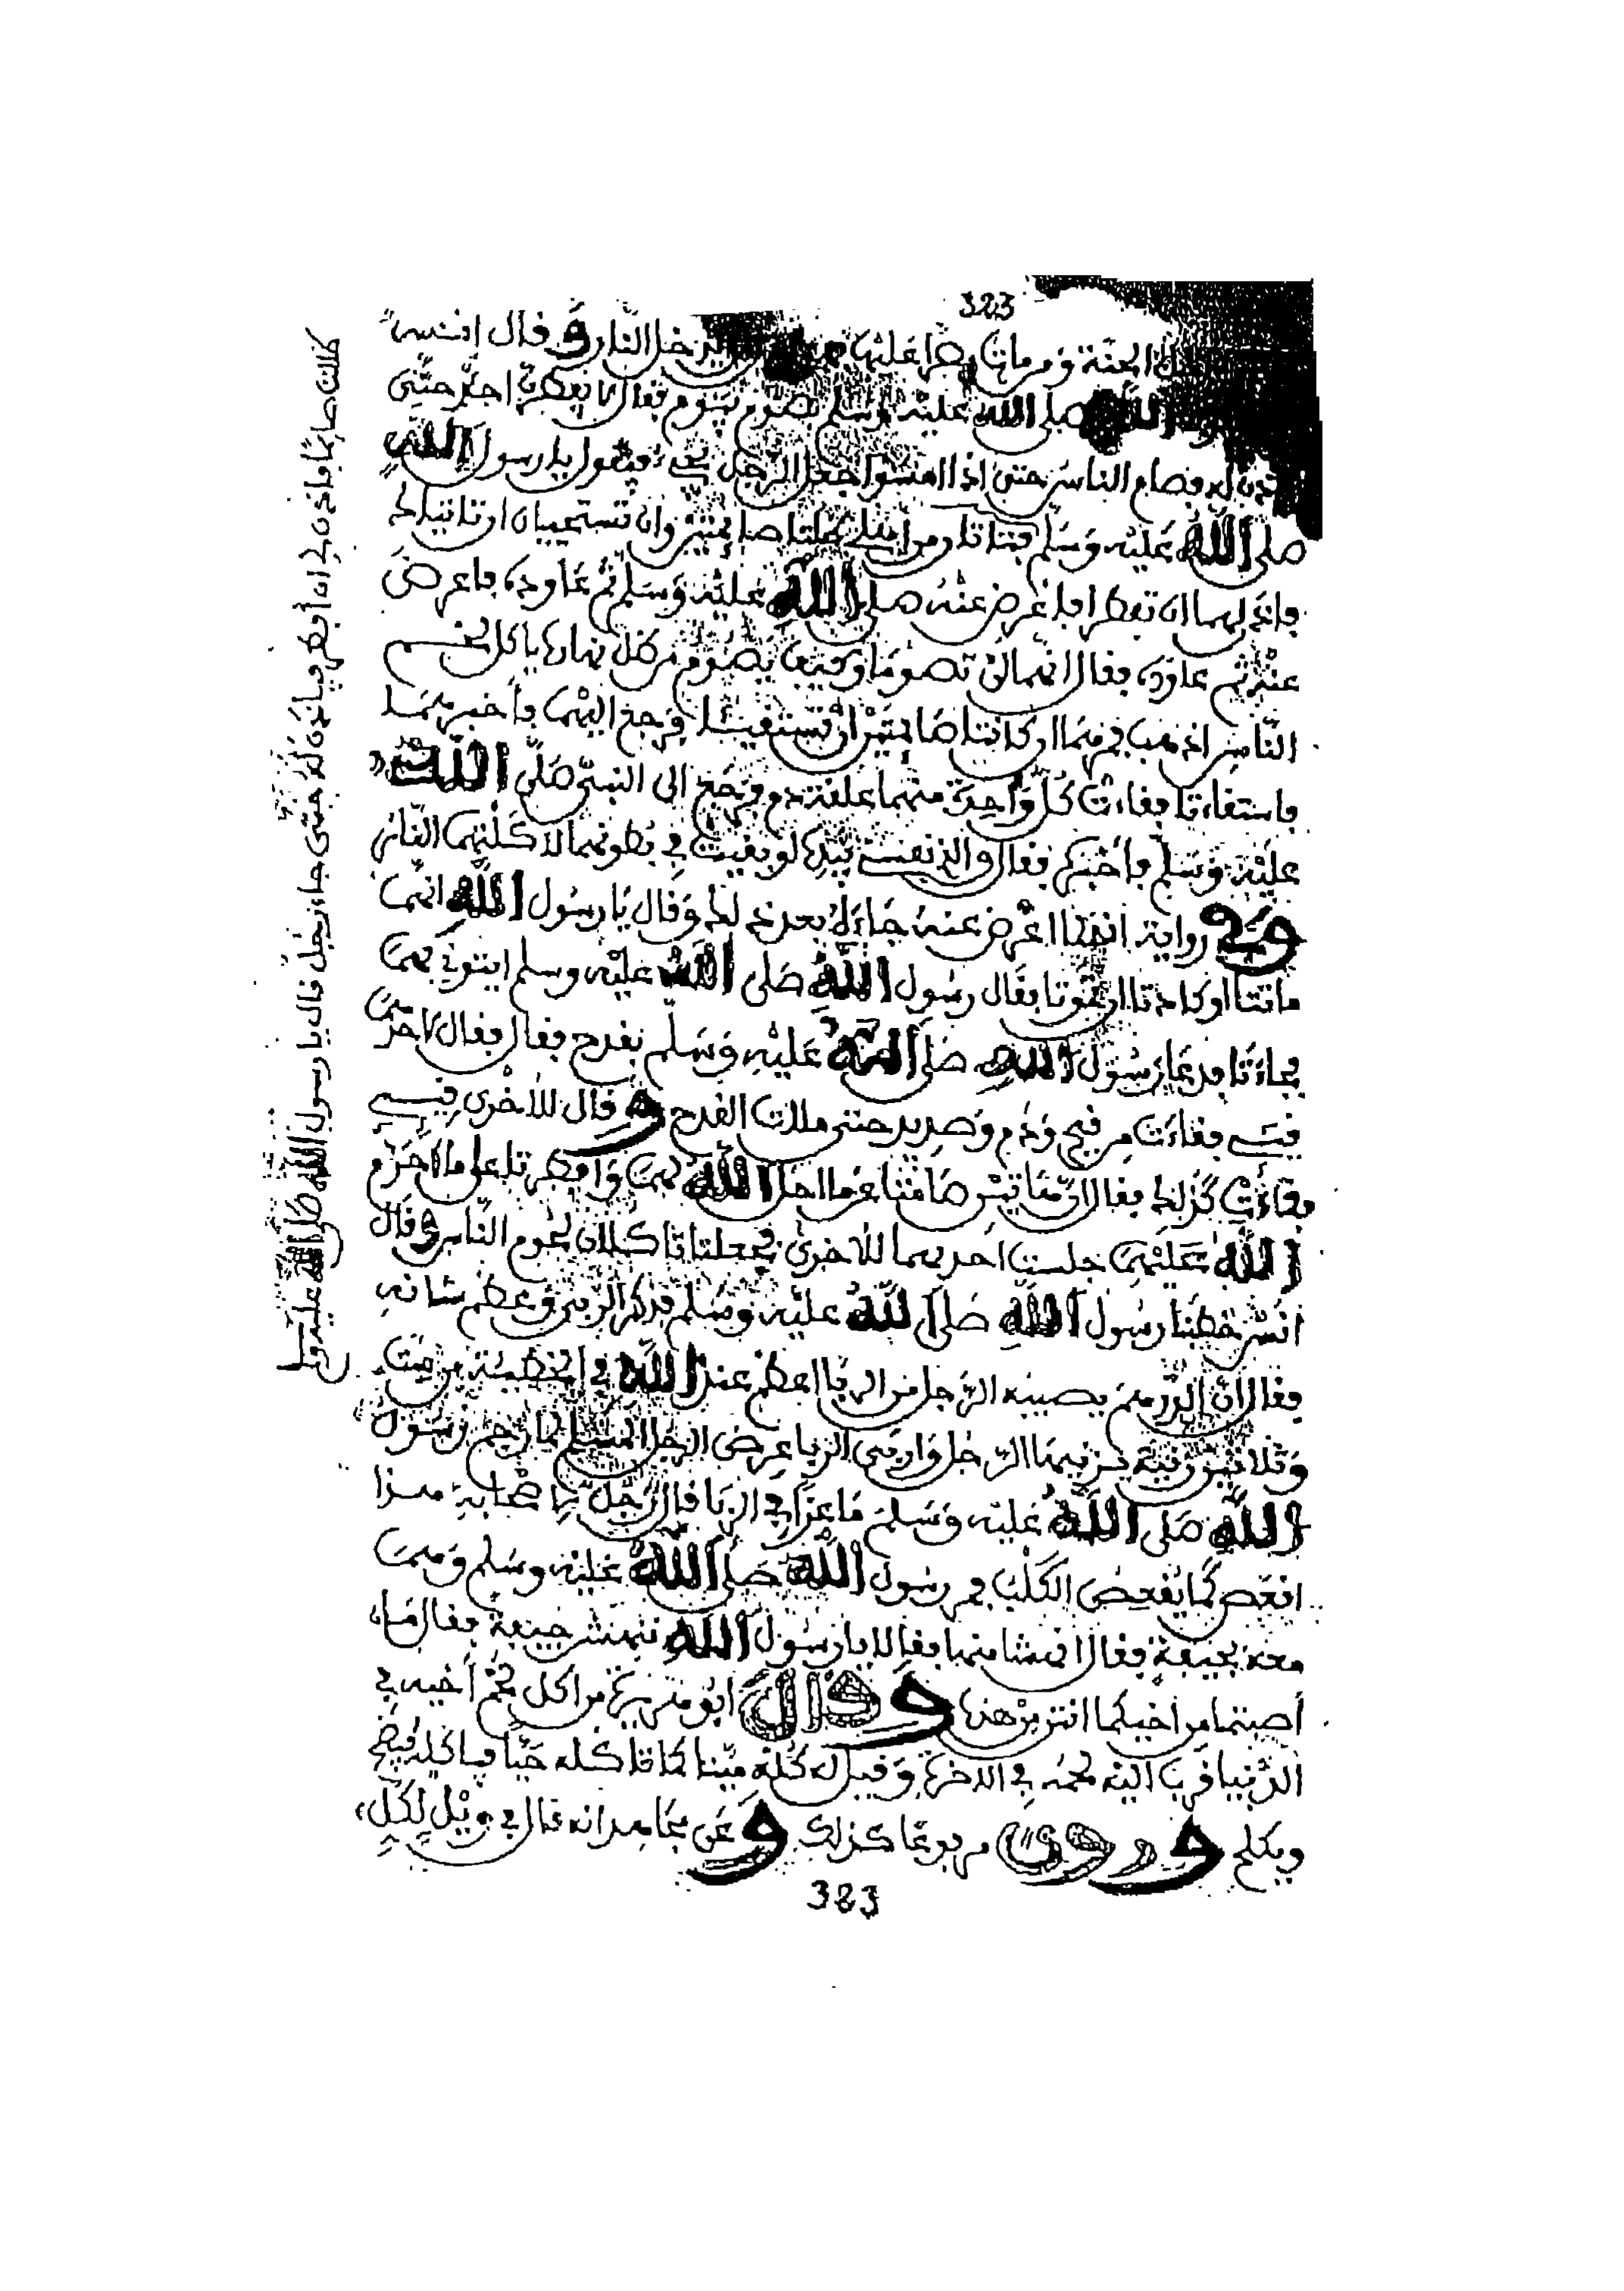 323
الجنة ومن مات مصرا عليها يدخل النار وقال انس
الله صلى الله عليه وسلم بصوم يوم فقال لا يفطرن احد حتى
ءاذن له فصام الناس حتى اذا امسوا جعل الرجل يجيء فيقول يا رسول الله
صلى الله عليه وسلم فتاتان من اهلي ظلتا صائمتين وان تستحييان ان تاتياك
فاذن لهما ان تفطرا فاعرض عنه صلى الله عليه وسلم ثم عاوده فاعرض
عنه ثم عاوده فقال انهما لن تصوما وكيف يصوم من ظل نهاره ياكل لحم
الناس اذهب فمرهما ان كانتا صائمتين ان تستقيئا فرجع اليهما فأخبرهما
فاستقاءتا فقاءت كل واحدة منهما علقة دم فرجع الى النبي صلى الله
عليه وسلم فأخبره فقال والذي نفسي بيده لو بقيت في بطونهما لاكلتهما النار
وفي رواية انه لما اعرض عنه جاءه بعد ذلك وقال يا رسول الله انهما
ماتتا او كادتا ان تموتا فقال رسول الله صلى الله عليه وسلم ايتوني بهما
فجاءتا فدعا رسول الله صلى الله عليه وسلم بقدح فقال لاحديهما
قيئي فقاءت من قيح ودم وصديد حتى ملات القدح وقال للأخرى قيئي
فقاءت كذلك فقال ان هاتين صامتا عما احل الله لهما وافطرتا على ما حرم
الله عليهما جلست احديهما للأخرى فجعلتا تاكلان لحوم الناس وقال
انس خطبنا رسول الله صلى الله عليه وسلم فذكر الربى وعظم شانه
فقال ان الدرهم يصيبه الرجل من الربا اعظم عند الله في الخطيئة من ست
وثلاثين زنية يزنيها الرجل واربى الربا عرض الرجل المسلم لما رجم رسول
الله صلى الله عليه وسلم ماعزا في الزنا قال رجل لصاحبه هذا
اقعص كما يقعص الكلب فمر رسول الله صلى الله عليه وسلم وهما
معه بجيفة فقال انهشا منها فقالا يا رسول الله ننهش جيفة فقال ما
أصبتما من اخيكما انتن من هذه وقال ابو هريرة من اكل لحم أخيه في
الدنيا قرب اليه لحمه في الاخرة وقيل له كله ميتا كما تاكله حيا فياكله فيضج
ويكلح وروى مرفوعا كذلك وعن مجاهد انه قال في ويل لكل
383
ظلت صائما فاذن لي ان أفطر فياذن له حتى جاء رجل فقال يا رسول الله صلى الله عليه وسلم